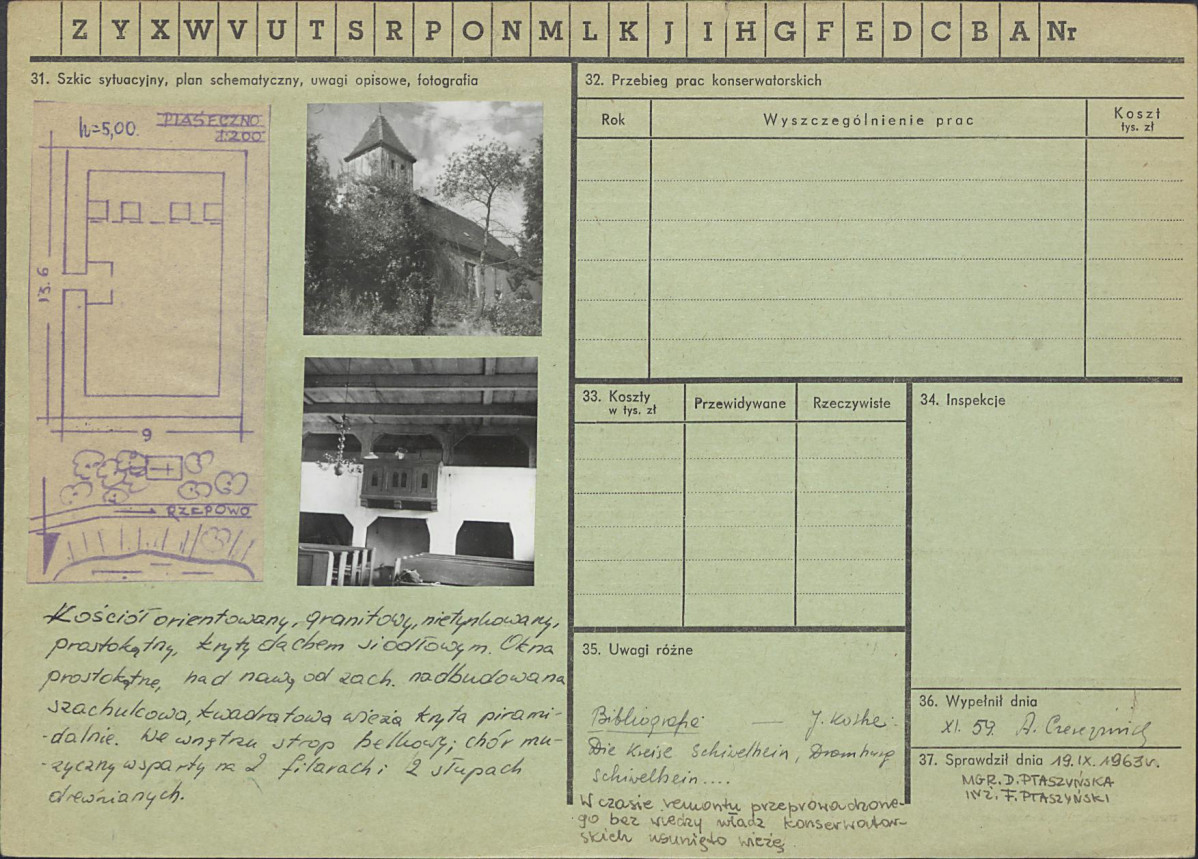 Z Y X W V U T S R P O N M L K J I H G F E D C B A Nr
31. Szkic sytuacyjny, plan schematyczny, uwagi opisowe, fotografia
h=5,00.
PIASECZNO
1:200
13.6
9
RZEPOWO
Kościół orientowany, granitowy, nietynkowany,
prostokątny, kryty dachem siodłowym. Okna
prostokątne, nad nawą od zach. nadbudowana
szachulcowa, kwadratowa wieża kryta pirami-
-dalnie. We wnętrzu strop belkowy; chór mu-
-zyczny wsparty na 2 filarach i 2 słupach
drewnianych.
32. Przebieg prac konserwatorskich
Rok
Wyszczególnienie prac
Koszt
tys. zł
33. Koszty
w tys. zł
Przewidywane
Rzeczywiste
34. Inspekcje
35. Uwagi różne
Bibliografia: — J. Kohte:
Die Kreise Schivelbein, Dramburg
Schivelbein....
W czasie remontu przeprowadzone-
go bez wiedzy władz konserwator-
skich usunięto wieżę.
36. Wypełnił dnia
XI. 59. A.
37. Sprawdził dnia 19.IX.1963r.
MGR. D. PTASZYŃSKA
INŻ. F. PTASZYŃSKI